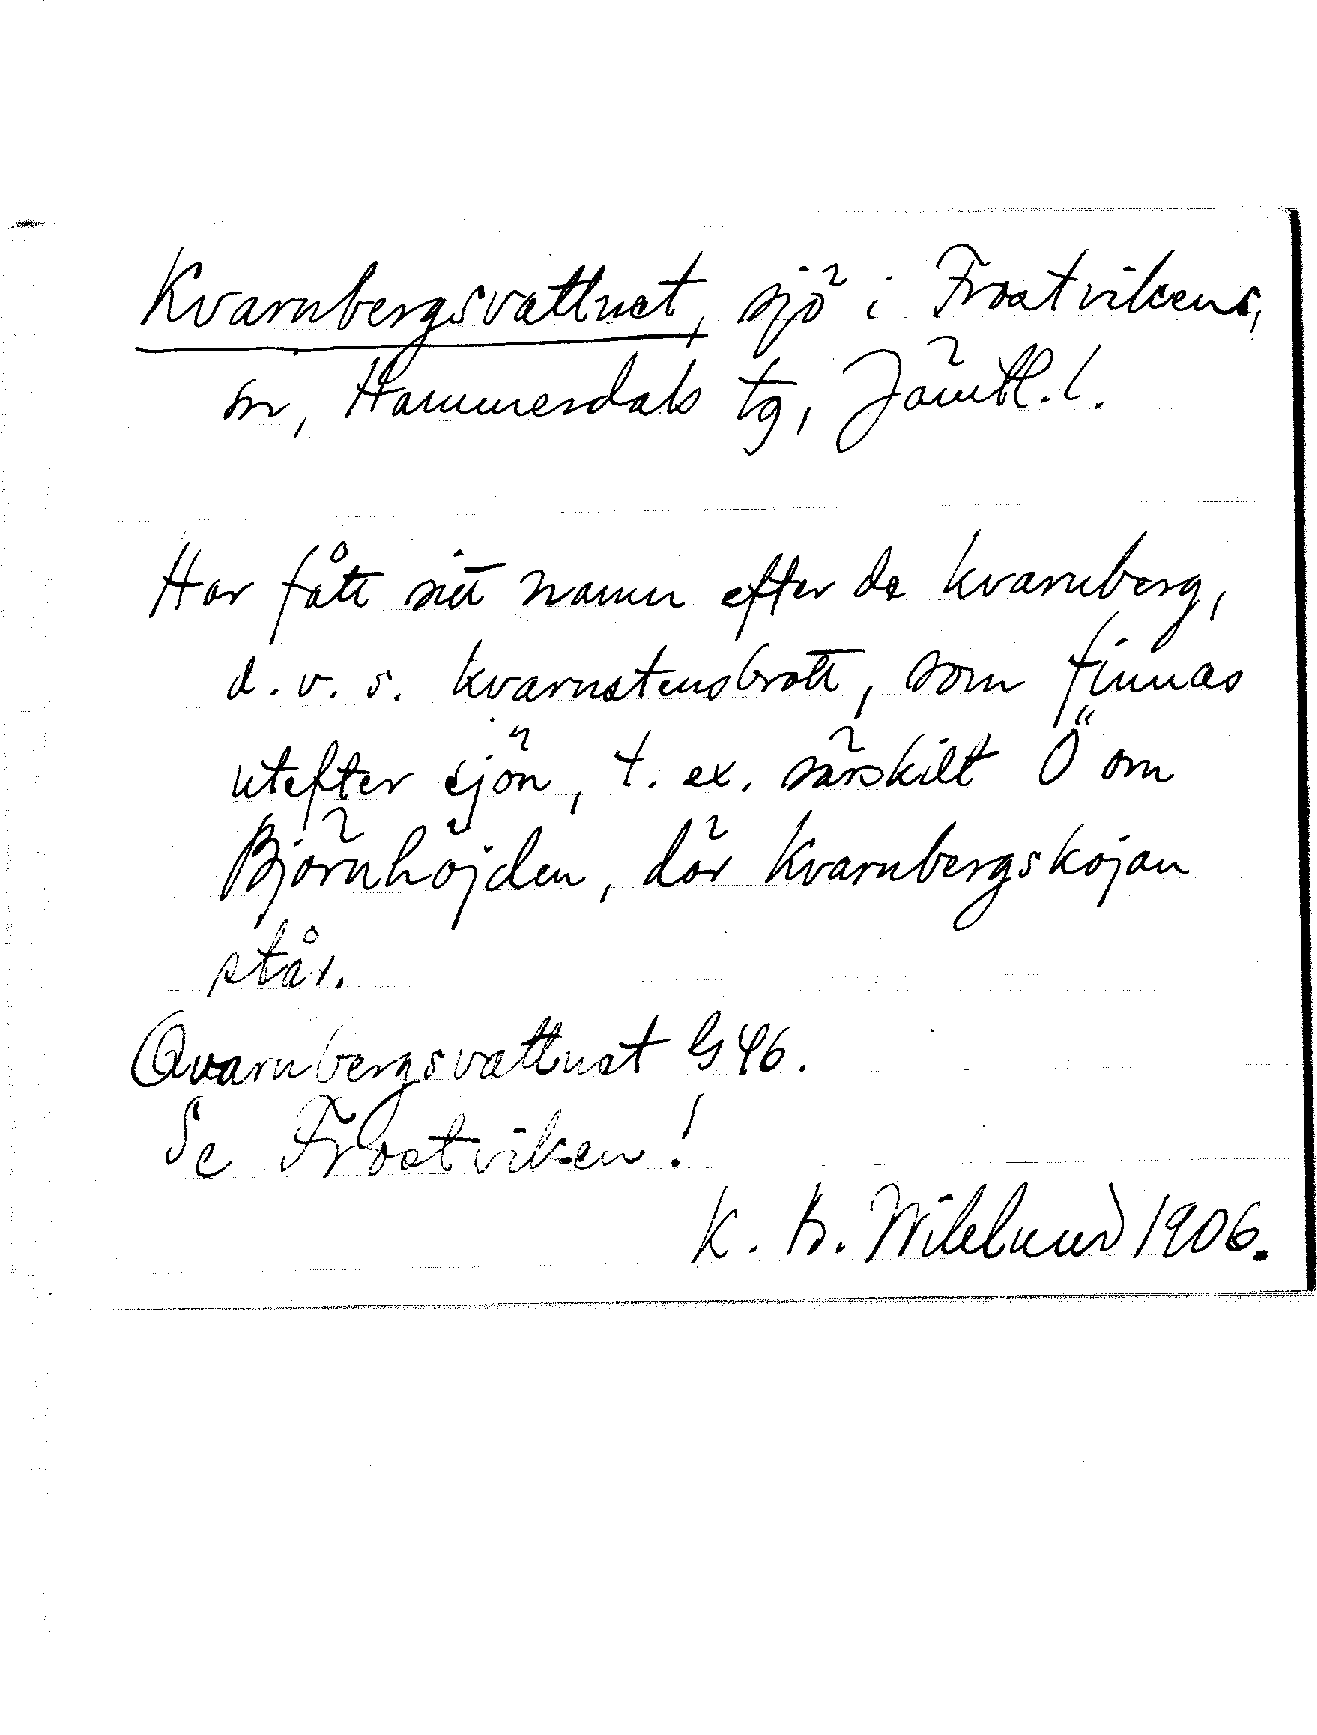 Kvarnbergsvattnet, sjö i Frostvikens,
sn, Hammerdals tg, Jämtl. l.
Har fått sitt namn efter de kvarnberg,
d.v.s. kvarnstensbrott, som finnas
utefter sjön, t. ex. särskilt Ö om
Björnhöjden, där Kvarnbergskojan
står.
Qvarnbergsvattnet G 46.
Se Frostviken!
K. B. Wiklund 1906.